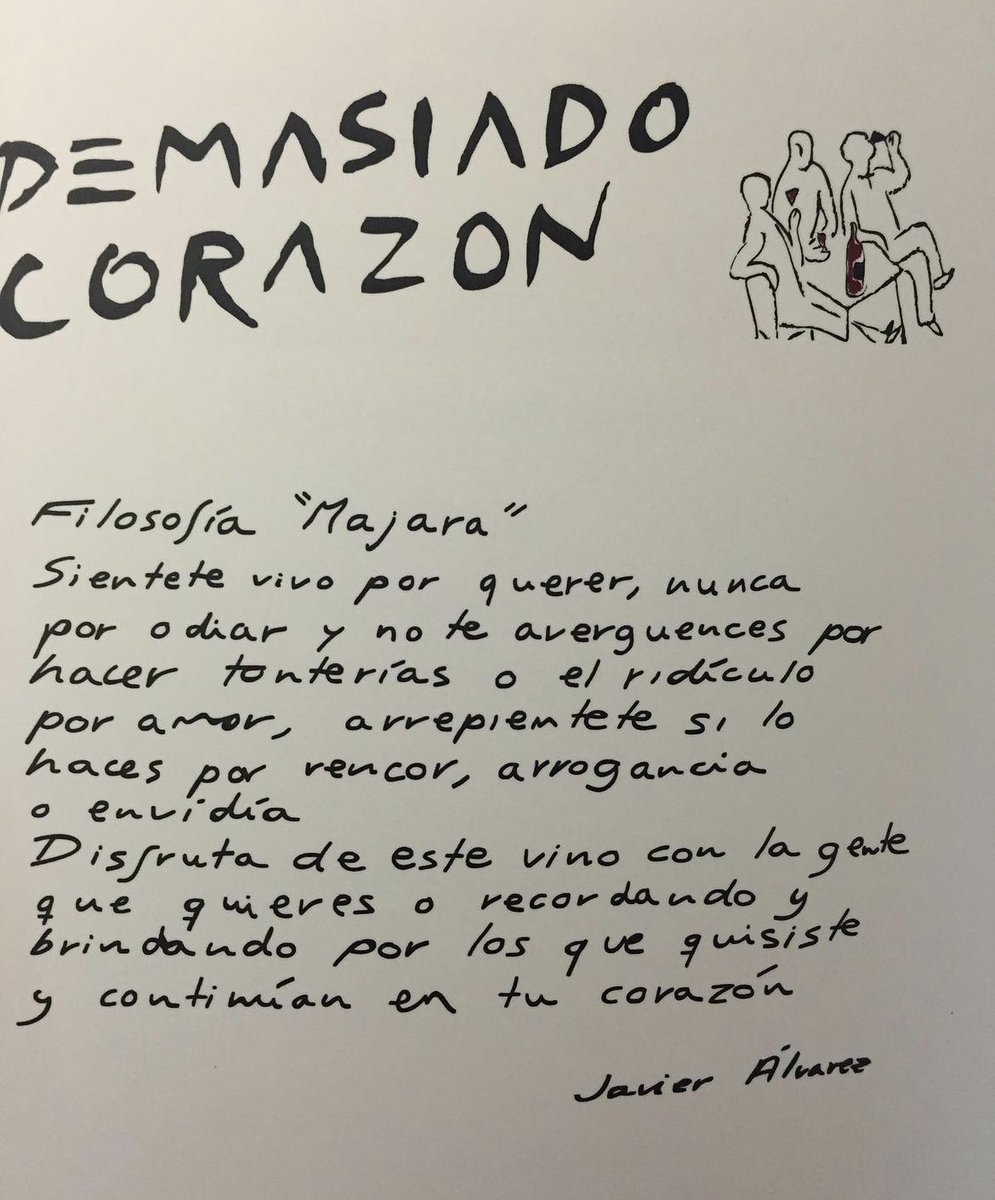 DEMASIADO
CORAZON
Filosofía "Majara"
Sientete vivo por querer, nunca
por odiar y no te averguences por
hacer tonterías o el ridículo
por amor, arrepientete si lo
haces por rencor, arrogancia
o envidía
Disfruta de este vino con la gente
que quieres o recordando y
brindando por los que quisiste
y continúan en tu corazón
Javier Álvarez